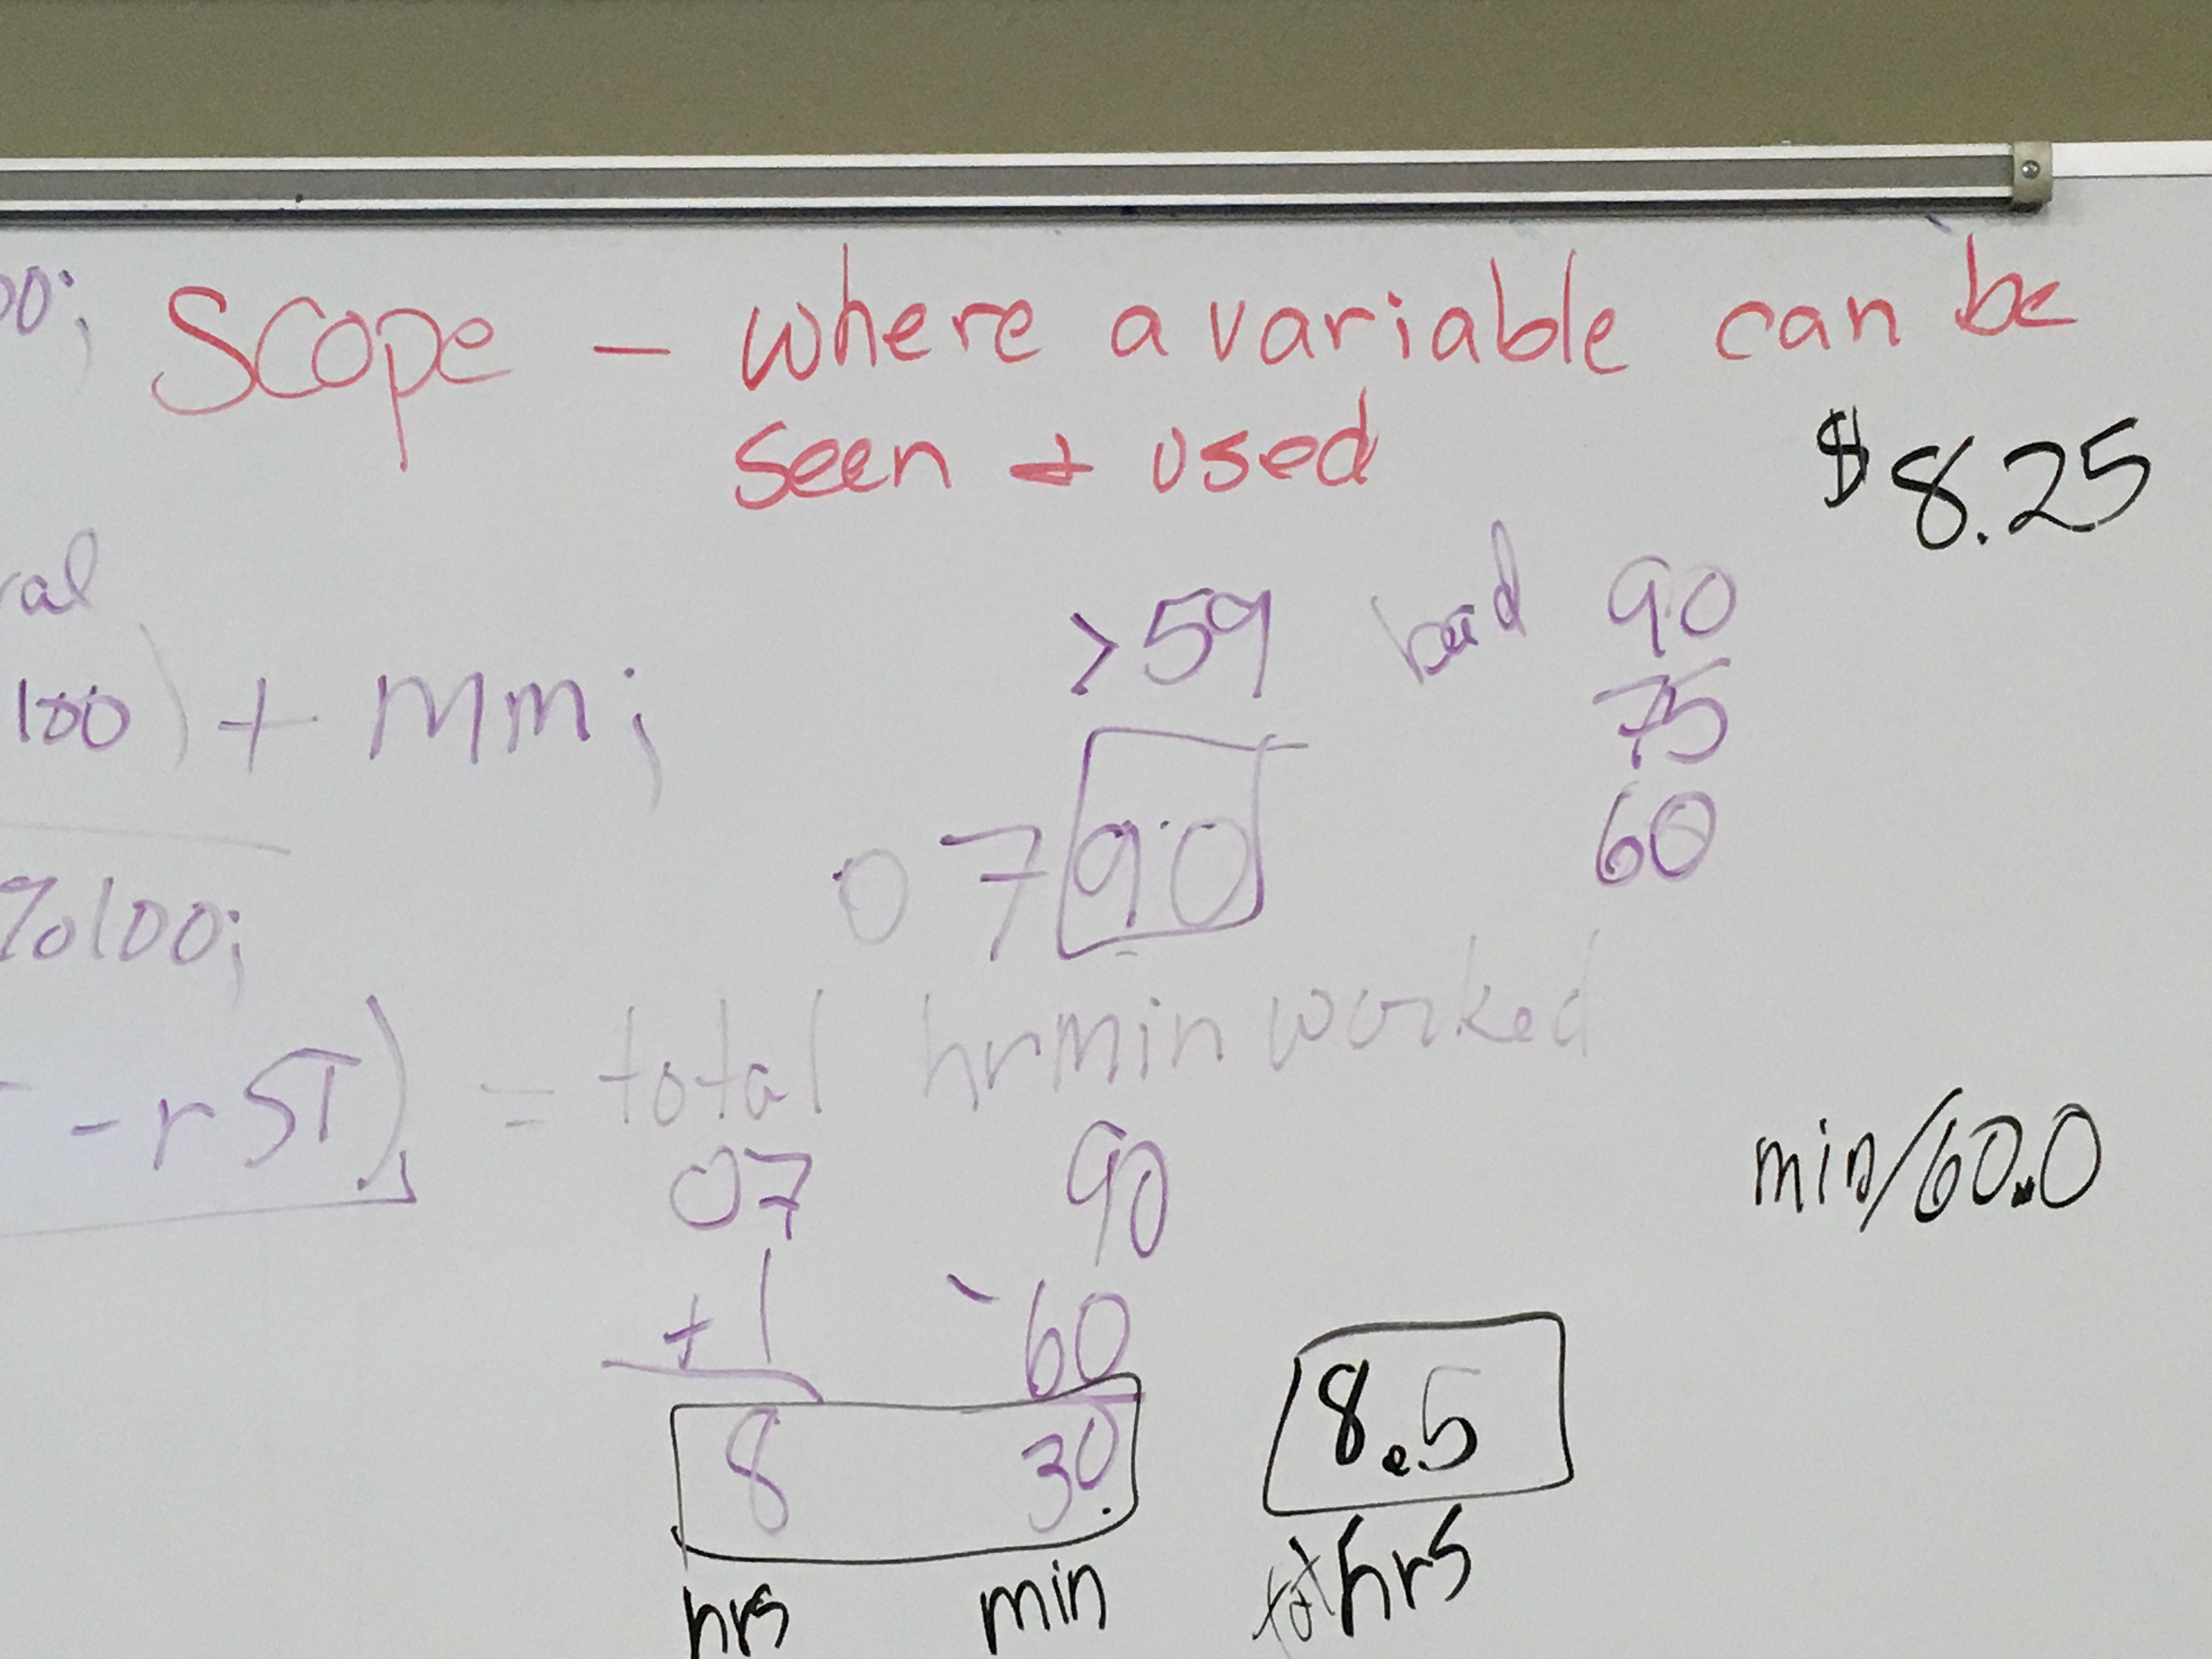 00;
Scope – where a variable can be
seen + used
$8.25
>59 bad 90
75
60
100) + mm;
0790
%100;
- rST) = total hrmin worked
07 90
+1 -60
8 30
hrs min
8.5
tot hrs
min/60.0